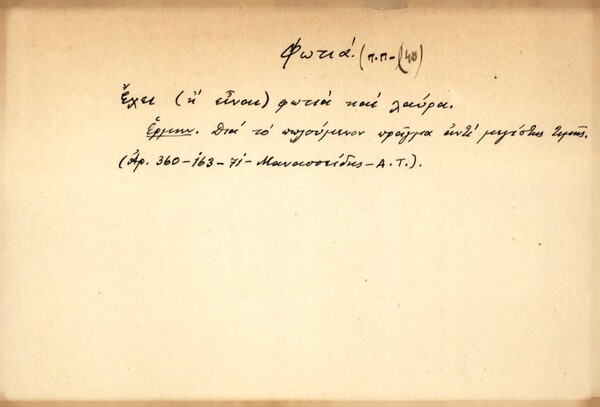 Φωτιά. (π.π-(40)
Ἔχει (ἤ εἶναι) φωτιά καί λαύρα.
Ἑρμην. Διά τό πωλούμενον πρᾶγμα ἀντί μεγίστης τιμῆς.
(Ἀρ. 360-163-71-Μανασσείδης-Α.Τ.).